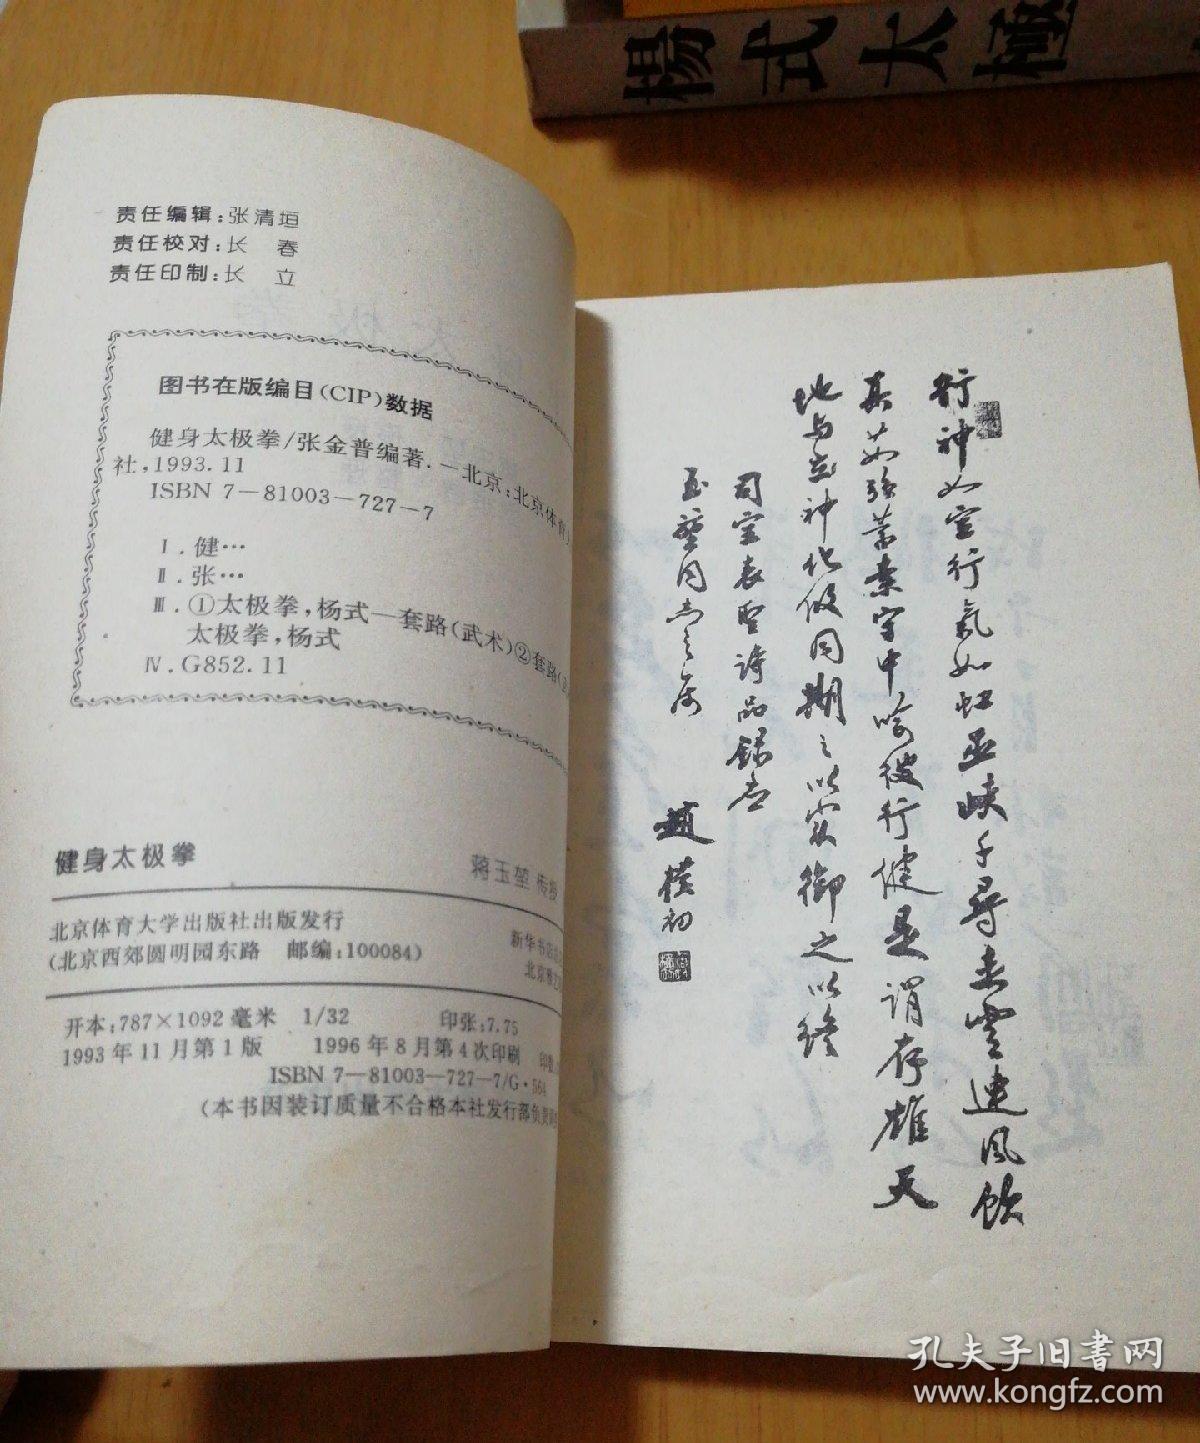 楊式太極
责任编辑:张清垣
责任校对:长 春
责任印制:长 立
图书在版编目(CIP)数据
健身太极拳/张金普编著.—北京:北京体育
社,1993.11
ISBN 7—81003—727—7
Ⅰ.健…
Ⅱ.张…
Ⅲ.①太极拳,杨式—套路(武术)②套路(
太极拳,杨式
Ⅳ.G852.11
健身太极拳
蒋玉堃 传授
北京体育大学出版社出版发行
(北京西郊圆明园东路 邮编:100084)
新华书店
北京
开本:787×1092毫米 1/32 印张:7.75
1993年11月第1版 1996年8月第4次印刷 印数
ISBN 7—81003—727—7/G·564
(本书因装订质量不合格本社发行部负责
行神如空行氣如虹巫峡千尋走雲連風飲
真茹强蓄素守中喻彼行健是谓存雄天
地与立神化攸同期之以实御之以终
司空表聖诗品録應
玉堃同志之属
趙樸初
孔夫子旧书网
www.kongfz.com